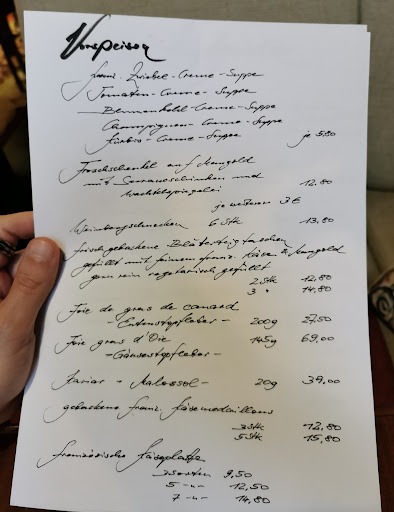 Vorspeisen
franz. Zwiebel-Creme-Suppe
Tomaten-Creme-Suppe
Blumenkohl-Creme-Suppe
Champignon-Creme-Suppe
Kürbis-Creme-Suppe je 5,80
Froschschenkel auf Mangold
mit Serranoschinken und
Wachtelspiegelei 12.80
je weiterer 3€
Weinbergschnecken 6 Stk 13,80
frisch gebackene Blätterteigtaschen
gefüllt mit feinem franz. Käse & Mangold
rein vegetarisch gefüllt
2 Stk 12,80
3 " 14,80
Foie de gras de canard
- Entenstopfleber - 200g 27,50
Foie gras d'Oie 145g 69,00
- Gänsestopfleber -
Kaviar - Malossol - 20g 39,00
gebackene franz. Käsemedaillons
3 Stk 12,80
5 Stk 15,80
französische Käseplatte
3 Sorten 9,50
5 -"- 12,50
7 -"- 14,80